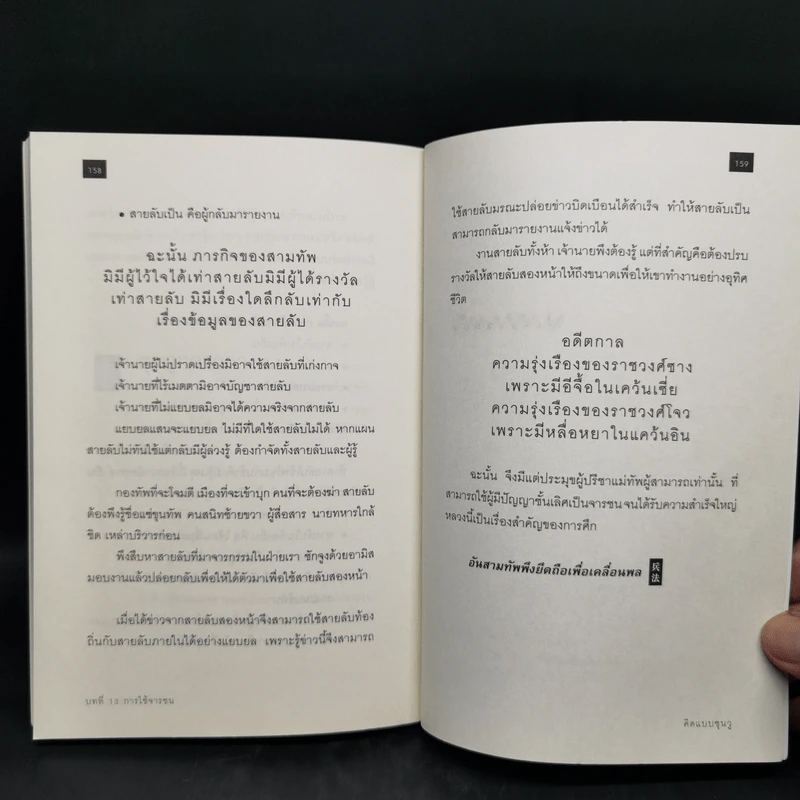 138
• สายลับเป็น คือผู้กลับมารายงาน
ฉะนั้น ภารกิจของสามทัพ
มิมีผู้ไว้ใจได้เท่าสายลับมิมีผู้ได้รางวัล
เท่าสายลับ มิมีเรื่องใดลึกลับเท่ากับ
เรื่องข้อมูลของสายลับ
เจ้านายผู้ไม่ปราดเปรื่องมิอาจใช้สายลับที่เก่งกาจ
เจ้านายที่ไร้เมตตามิอาจบัญชาสายลับ
เจ้านายที่ไม่แยบยลมิอาจได้ความจริงจากสายลับ
แยบยลแสนจะแยบยล ไม่มีที่ใดใช้สายลับไม่ได้ หากแผน
สายลับไม่ทันใช้แต่กลับมีผู้ล่วงรู้ ต้องกำจัดทั้งสายลับและผู้รู้
กองทัพที่จะโจมตี เมืองที่จะเข้าบุก คนที่จะต้องฆ่า สายลับ
ต้องพึงรู้ชื่อแซ่ขุนทัพ คนสนิทซ้ายขวา ผู้สื่อสาร นายทหารใกล้
ชิด เหล่าบริวารก่อน
พึงสืบหาสายลับที่มาจารกรรมในฝ่ายเรา ชักจูงด้วยอามิส
มอบงานแล้วปล่อยกลับเพื่อให้ได้ตัวมาเพื่อใช้สายลับสองหน้า
เมื่อได้ข่าวจากสายลับสองหน้าจึงสามารถใช้สายลับท้อง
ถิ่นกับสายลับภายในได้อย่างแยบยล เพราะรู้ข่าวนี้จึงสามารถ
บทที่ 13 การใช้จารชน
159
ใช้สายลับมรณะปล่อยข่าวบิดเบือนได้สำเร็จ ทำให้สายลับเป็น
สามารถกลับมารายงานแจ้งข่าวได้
งานสายลับทั้งห้า เจ้านายพึงต้องรู้ แต่ที่สำคัญคือต้องปรบ
รางวัลให้สายลับสองหน้าให้ถึงขนาดเพื่อให้เขาทำงานอย่างอุทิศ
ชีวิต
อดีตกาล
ความรุ่งเรืองของราชวงศ์ซาง
เพราะมีอีจื้อในแคว้นเซี่ย
ความรุ่งเรืองของราชวงศ์โจว
เพราะมีหลื่อหยาในแคว้นอิน
ฉะนั้น จึงมีแต่ประมุขผู้ปรีชาแม่ทัพผู้สามารถเท่านั้น ที่
สามารถใช้ผู้มีปัญญาชั้นเลิศเป็นจารชน จนได้รับความสำเร็จใหญ่
หลวงนี้เป็นเรื่องสำคัญของการศึก
อันสามทัพพึงยึดถือเพื่อเคลื่อนพล 兵法
คิดแบบซุนวู